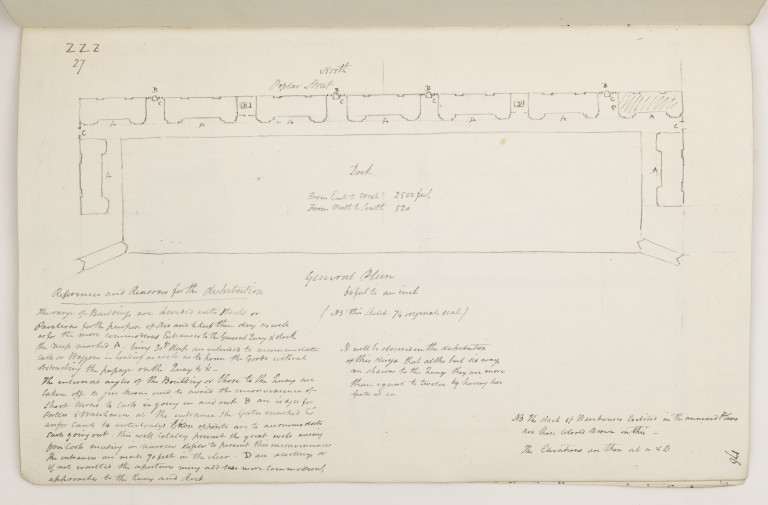 ZZZ
27
North
Poplar Street
B
C
B
C
B
C
B
C
D
D
A
A
A
A
A
A
C
C
A
A
Dock
From East to West 2500 feet
From North to South 520
General Plan
60 feet to an inch
(NB this sketch 1/4 original scale)
References and Reasons for the distribution
The range of Buildings are divided into Stacks or
Pavilions for the purpose of Air and to keep them dry as well
as for the more commodious Entrances to the General Quay & dock
the marked A being 30 ft deep are intended to accommodate
Carts or Waggons in loading as well as to house the Goods without
obstructing the passage on the Quay &c &c
The internal angles of the Building or those to the Quay are
taken off to give Room and to avoid the inconvenience of
Short turns to Carts in going in and out B are Lodges for
Porters & Watchmen at the entrance, the Gates marked C
are for Carts to enter only & those opposite are to accommodate
Carts going out this will totally prevent the great evils arising
from Carts meeting in narrow defiles to prevent this inconvenience
the entrances are made 70 feet in the clear. D are
if not wanted the apertures may add two more commodious
approaches to the Quay and dock
It will be observed in the distribution
of this design that altho but six ways
are shewn to the Quay they are more
than equal to twelve by having two
Gates to ea
NB The stack of Warehouse Sections in the annexed sheets
are those colored brown on this
The Elevations are those at a & B
176